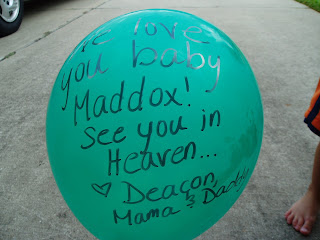 love
you baby
Maddox!
See you in
Heaven...
♡ Deacon,
Mama & Daddy